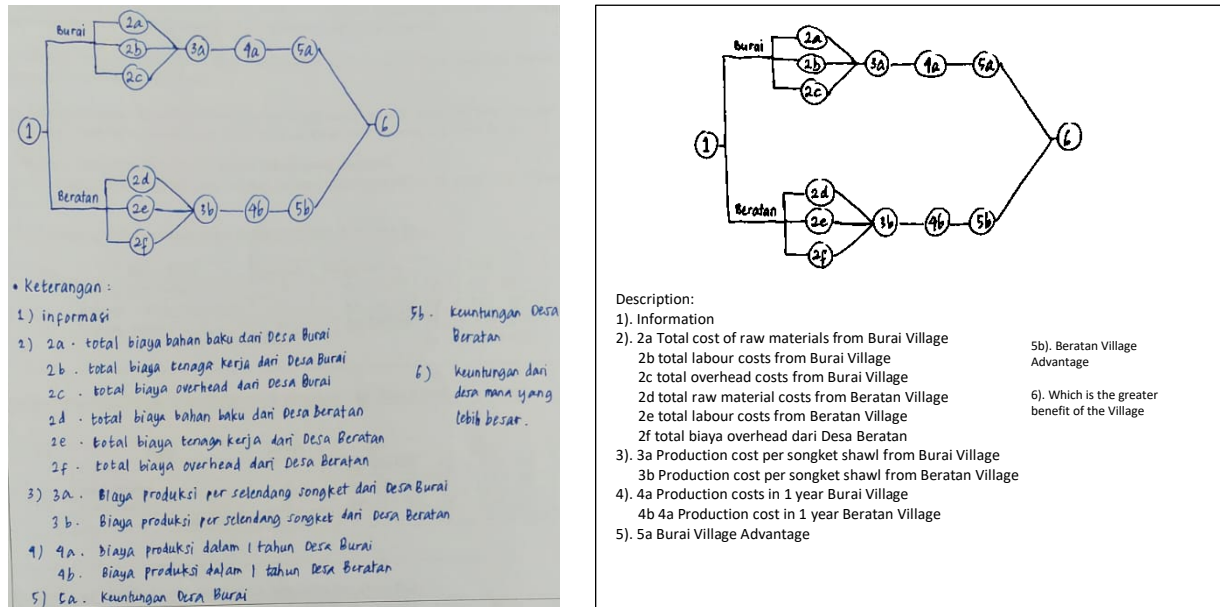 Burai
2a
2b
2c
3a
4a
5a
1
6
Beratan
2d
2e
2f
3b
4b
5b
• Keterangan :
1) informasi
2) 2a · total biaya bahan baku dari Desa Burai
2b · total biaya tenaga kerja dari Desa Burai
2c · total biaya overhead dari Desa Burai
2d · total biaya bahan baku dari Desa Beratan
2e · total biaya tenaga kerja dari Desa Beratan
2f · total biaya overhead dari Desa Beratan
3) 3a. Biaya produksi per selendang songket dari Desa Burai
3b. Biaya produksi per selendang songket dari Desa Beratan
4) 4a. Biaya produksi dalam 1 tahun Desa Burai
4b. Biaya produksi dalam 1 tahun Desa Beratan
5) 5a. Keuntungan Desa Burai
5b. Keuntungan Desa
Beratan
6) Keuntungan dari
desa mana yang
lebih besar.
Burai
2a
2b
2c
3a
4a
5a
1
6
Beratan
2d
2e
2f
3b
4b
5b
Description:
1). Information
2). 2a Total cost of raw materials from Burai Village
2b total labour costs from Burai Village
2c total overhead costs from Burai Village
2d total raw material costs from Beratan Village
2e total labour costs from Beratan Village
2f total biaya overhead dari Desa Beratan
3). 3a Production cost per songket shawl from Burai Village
3b Production cost per songket shawl from Beratan Village
4). 4a Production costs in 1 year Burai Village
4b 4a Production cost in 1 year Beratan Village
5). 5a Burai Village Advantage
5b). Beratan Village
Advantage
6). Which is the greater
benefit of the Village